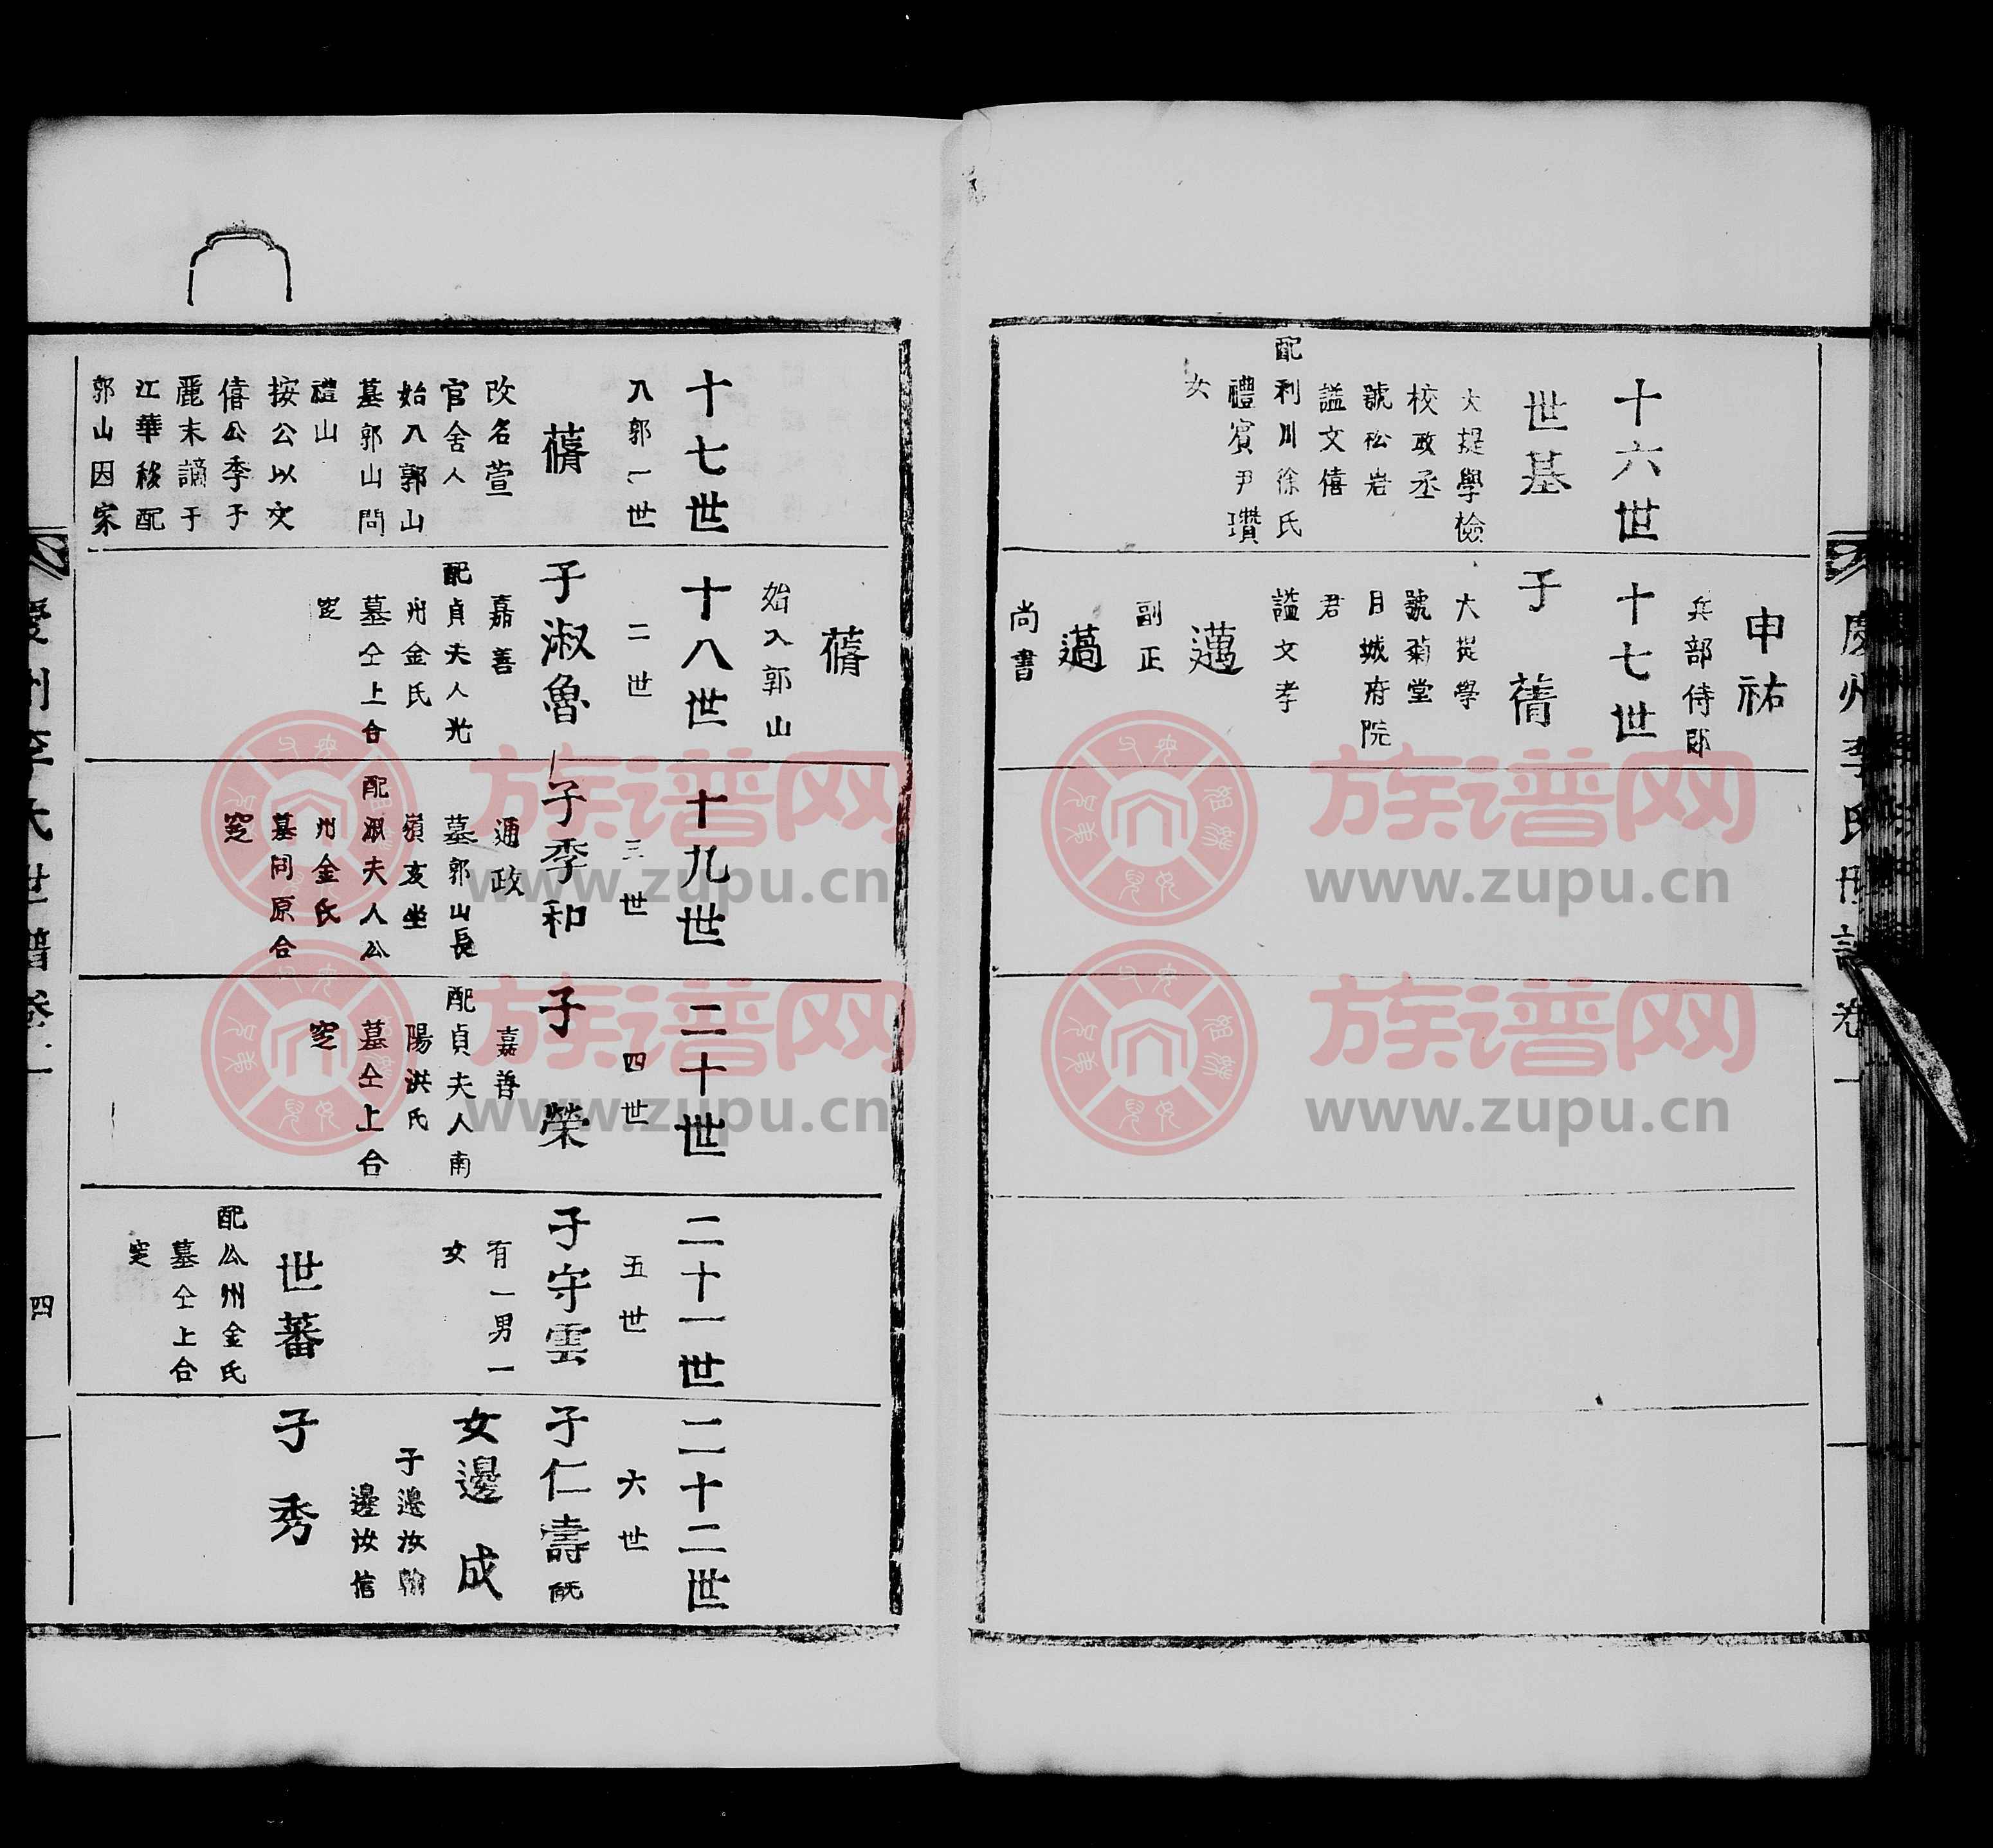 慶州李氏世譜卷一
十六世
世基
大提學檢
校政丞
號松岩
諡文僖
配利川徐氏
禮賓尹瓚
女
申祐
兵部侍郎
十七世
子蒨
大提學
號菊堂
月城府院
君
諡文孝
邁
副正
薖
尚書
十七世
入郭一世
蒨
改名萱
官舍人
始入郭山
墓郭山問
禮山
按公以文
僖公季子
麗末謫于
江華移配
郭山因家
蒨
始入郭山
十八世
二世
子淑魯
嘉善
配貞夫人光
州金氏
墓仝上合
窆
十九世
三世
子季和
通政
墓郭山長
嶺亥坐
配淑夫人公
州金氏
墓同原合
窆
二十世
四世
子榮
嘉善
配貞夫人南
陽洪氏
墓仝上合
窆
二十一世
五世
子守雲
有一男一
女
世蕃
配公州金氏
墓仝上合
窆
二十二世
六世
子仁壽
女邊成
子邊汝翰
邊汝信
子秀
慶州李氏世譜卷一
四
族谱网
www.zupu.cn
族谱网
www.zupu.cn
族谱网
www.zupu.cn
族谱网
www.zupu.cn